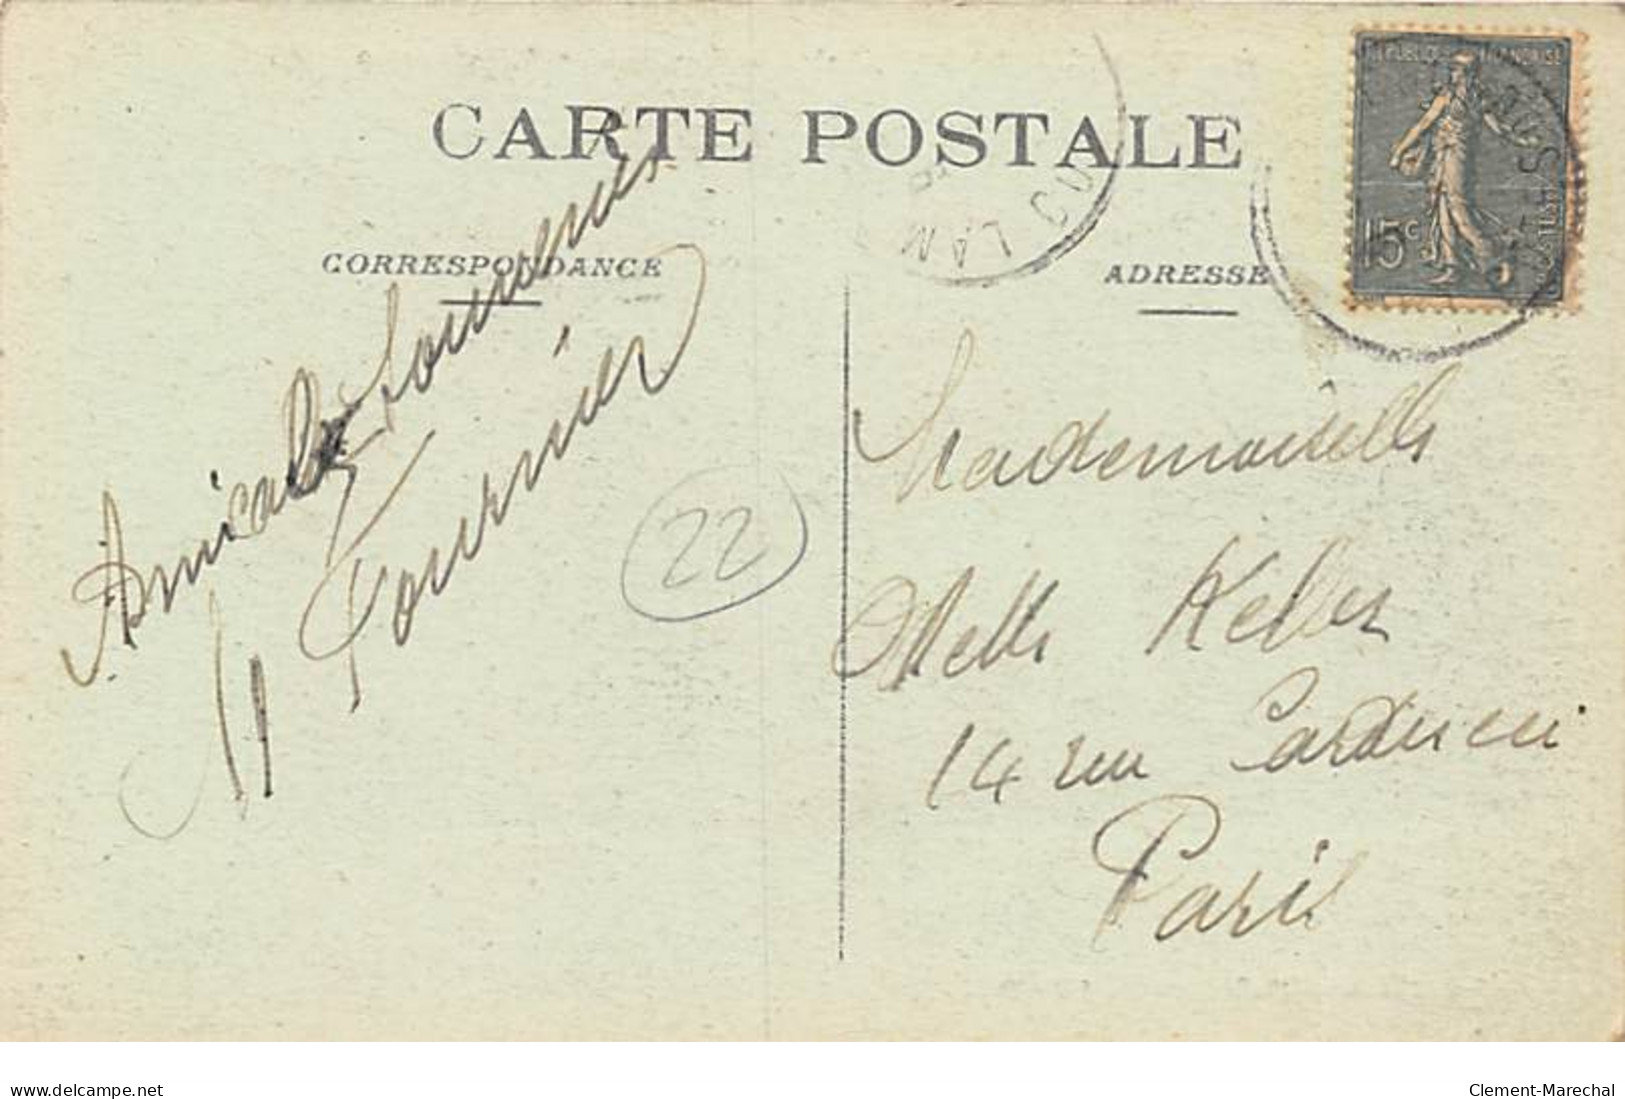 CARTE POSTALE
CORRESPONDANCE
ADRESSE
REPUBLIQUE FRANÇAISE
15c
POSTES
LAN
Amical Souvenir
Fournier
22
Mademoiselle
Melle Keller
14 rue Carducci
Paris
delcampe.net
Clement-Marechal